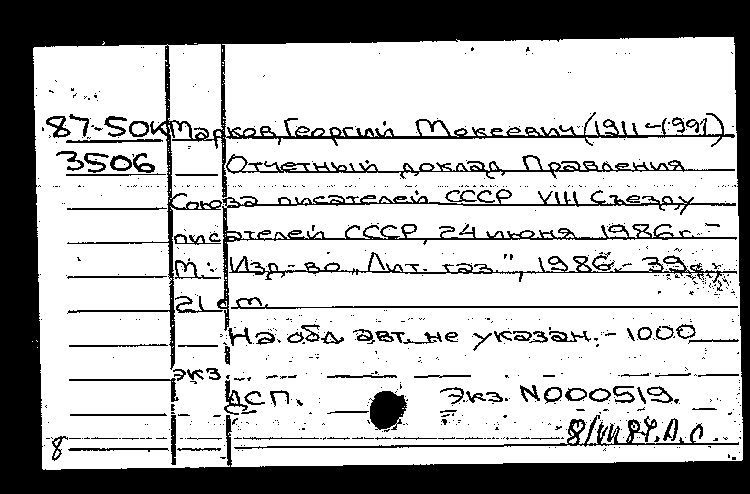 87-50к Марков, Георгий Мокеевич (1911-1991)
3506 Отчетный доклад Правления
Союза писателей СССР VIII Съезду
писателей СССР, 24 июня 1986г. -
М.: Изд-во „Лит. газ.", 1986. - 39с.;
21 cm.
На обл. авт. не указан. - 1000
экз.
ДСП. Экз. N000519.
8